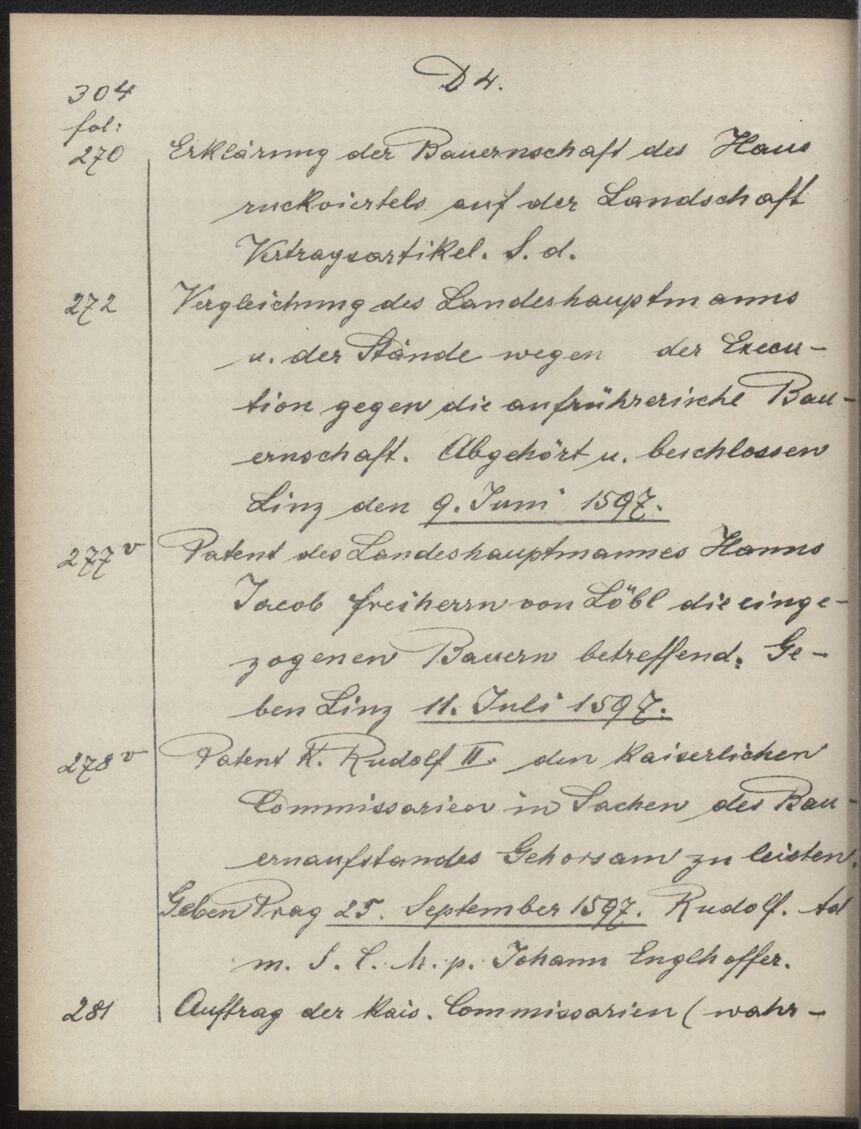 D 4.
304
fol:
270 Erklärung der Bauernschaft des Haus
ruckviertels auf der Landschaft
Vertragsartikel. S. d.
272 Vergleichung des Landeshauptmanns
u. der Stände wegen der Execu-
tion gegen die aufrührerische Bau-
ernschaft. Abgehört u. beschlossen
Linz den 9. Juni 1597.
277v Patent des Landeshauptmannes Hanns
Jacob freiherrn von Löbl die einge-
zogenen Bauern betreffend. Ge-
ben Linz 11. Juli 1597.
278v Patent K. Rudolf II. den kaiserlichen
Commissarien in Sachen des Bau-
ernaufstandes Gehorsam zu leisten.
Geben Prag 25. September 1597. Rudolf. Ad
m. S. C. M. p. Johann Englhoffer.
281 Auftrag der kais. Commissarien (wahr-